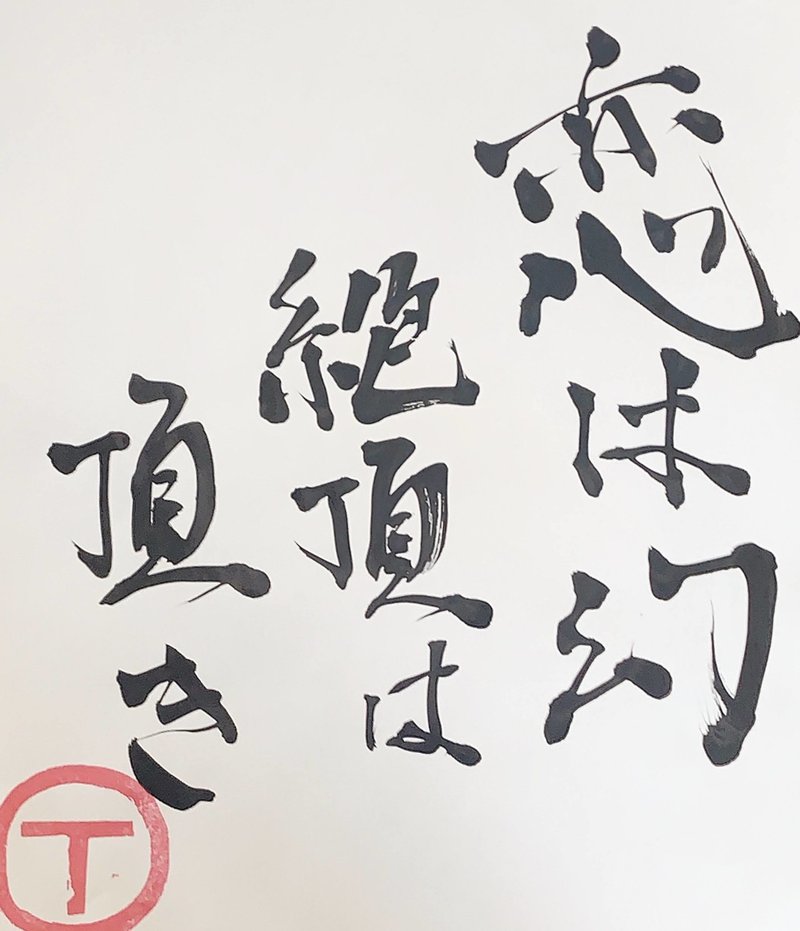 恋は幻
絶頂は
頂き
T